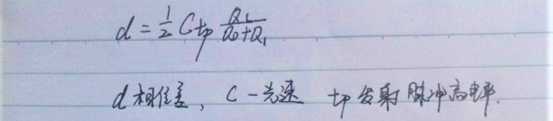 d = 1/2 C tp Q1/(Q0+Q1)
d 相位差, C - 光速 tp 发射脉冲高电平.